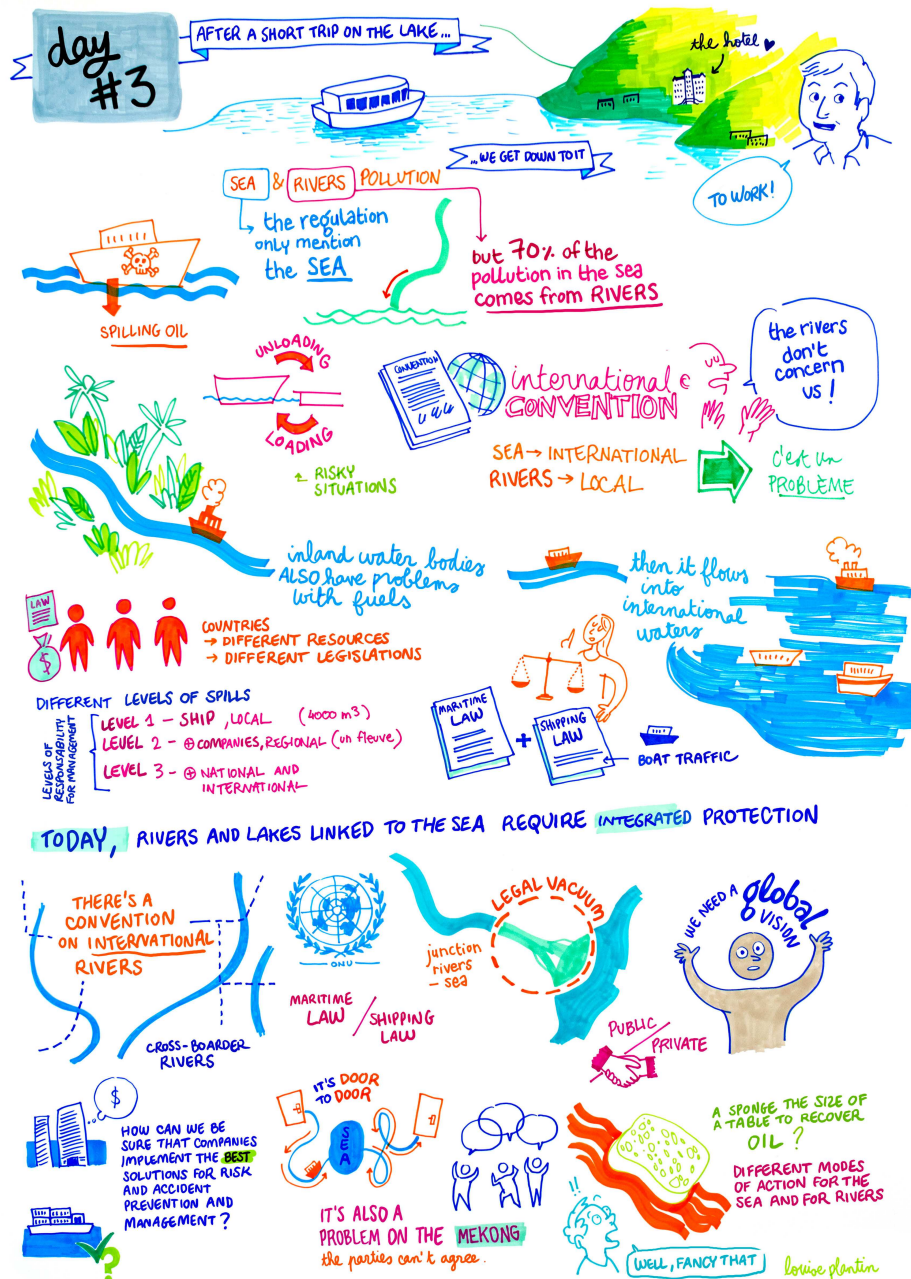 day
#3
AFTER A SHORT TRIP ON THE LAKE...
the hotel
...WE GET DOWN TO IT
TO WORK!
SEA & RIVERS POLLUTION
the regulation
only mention
the SEA
but 70% of the
pollution in the sea
comes from RIVERS
SPILLING OIL
UNLOADING
LOADING
RISKY
SITUATIONS
CONVENTION
international
CONVENTION
the rivers
don't
concern
us!
SEA → INTERNATIONAL
RIVERS → LOCAL
c'est un
PROBLÈME
inland water bodies
ALSO have problems
with fuels
then it flows
into
international
waters
LAW
$
COUNTRIES
→ DIFFERENT RESOURCES
→ DIFFERENT LEGISLATIONS
DIFFERENT LEVELS OF SPILLS
LEVELS OF
RESPONSABILITY
FOR MANAGEMENT
LEVEL 1 - SHIP, LOCAL (4000 m3)
LEVEL 2 - ⊕ COMPANIES, REGIONAL (un fleuve)
LEVEL 3 - ⊕ NATIONAL AND
INTERNATIONAL
MARITIME
LAW
+
SHIPPING
LAW
BOAT TRAFFIC
TODAY, RIVERS AND LAKES LINKED TO THE SEA REQUIRE INTEGRATED PROTECTION
THERE'S A
CONVENTION
ON INTERNATIONAL
RIVERS
CROSS-BOARDER
RIVERS
ONU
MARITIME
LAW / SHIPPING
LAW
LEGAL VACUUM
junction
rivers
- sea
WE NEED A global
VISION
PUBLIC / PRIVATE
$
HOW CAN WE BE
SURE THAT COMPANIES
IMPLEMENT THE BEST
SOLUTIONS FOR RISK
AND ACCIDENT
PREVENTION AND
MANAGEMENT?
?
IT'S DOOR
TO DOOR
SEA
IT'S ALSO A
PROBLEM ON THE MEKONG
the parties can't agree.
A SPONGE THE SIZE OF
A TABLE TO RECOVER
OIL?
DIFFERENT MODES
OF ACTION FOR THE
SEA AND FOR RIVERS
!!
WELL, FANCY THAT
louise plantin